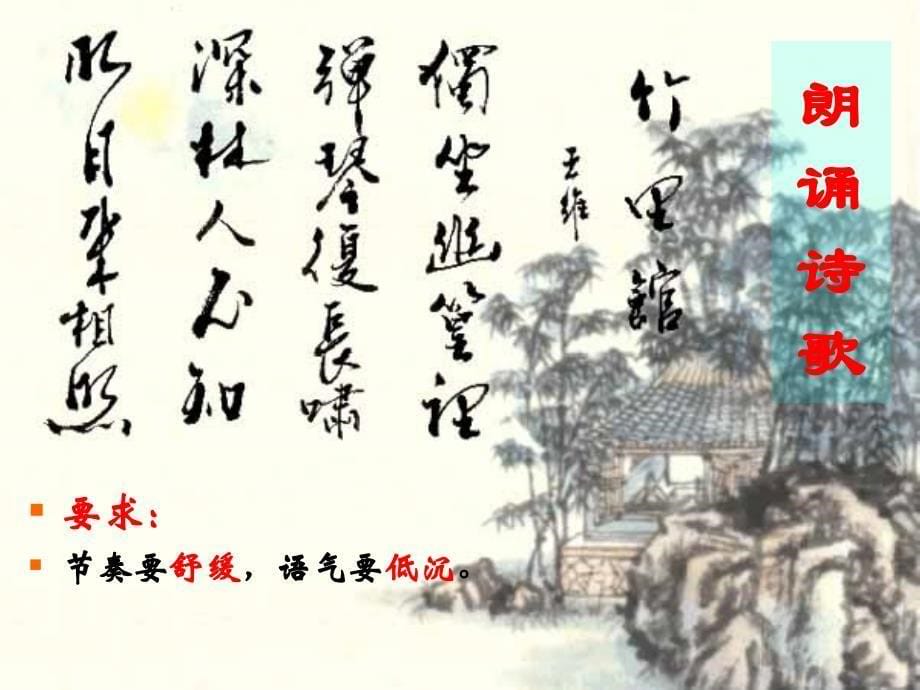 朗诵诗歌
竹里館
王維
獨坐幽篁裡
弾琴復長嘯
深林人不知
明月来相照
要求：
节奏要舒缓，语气要低沉。